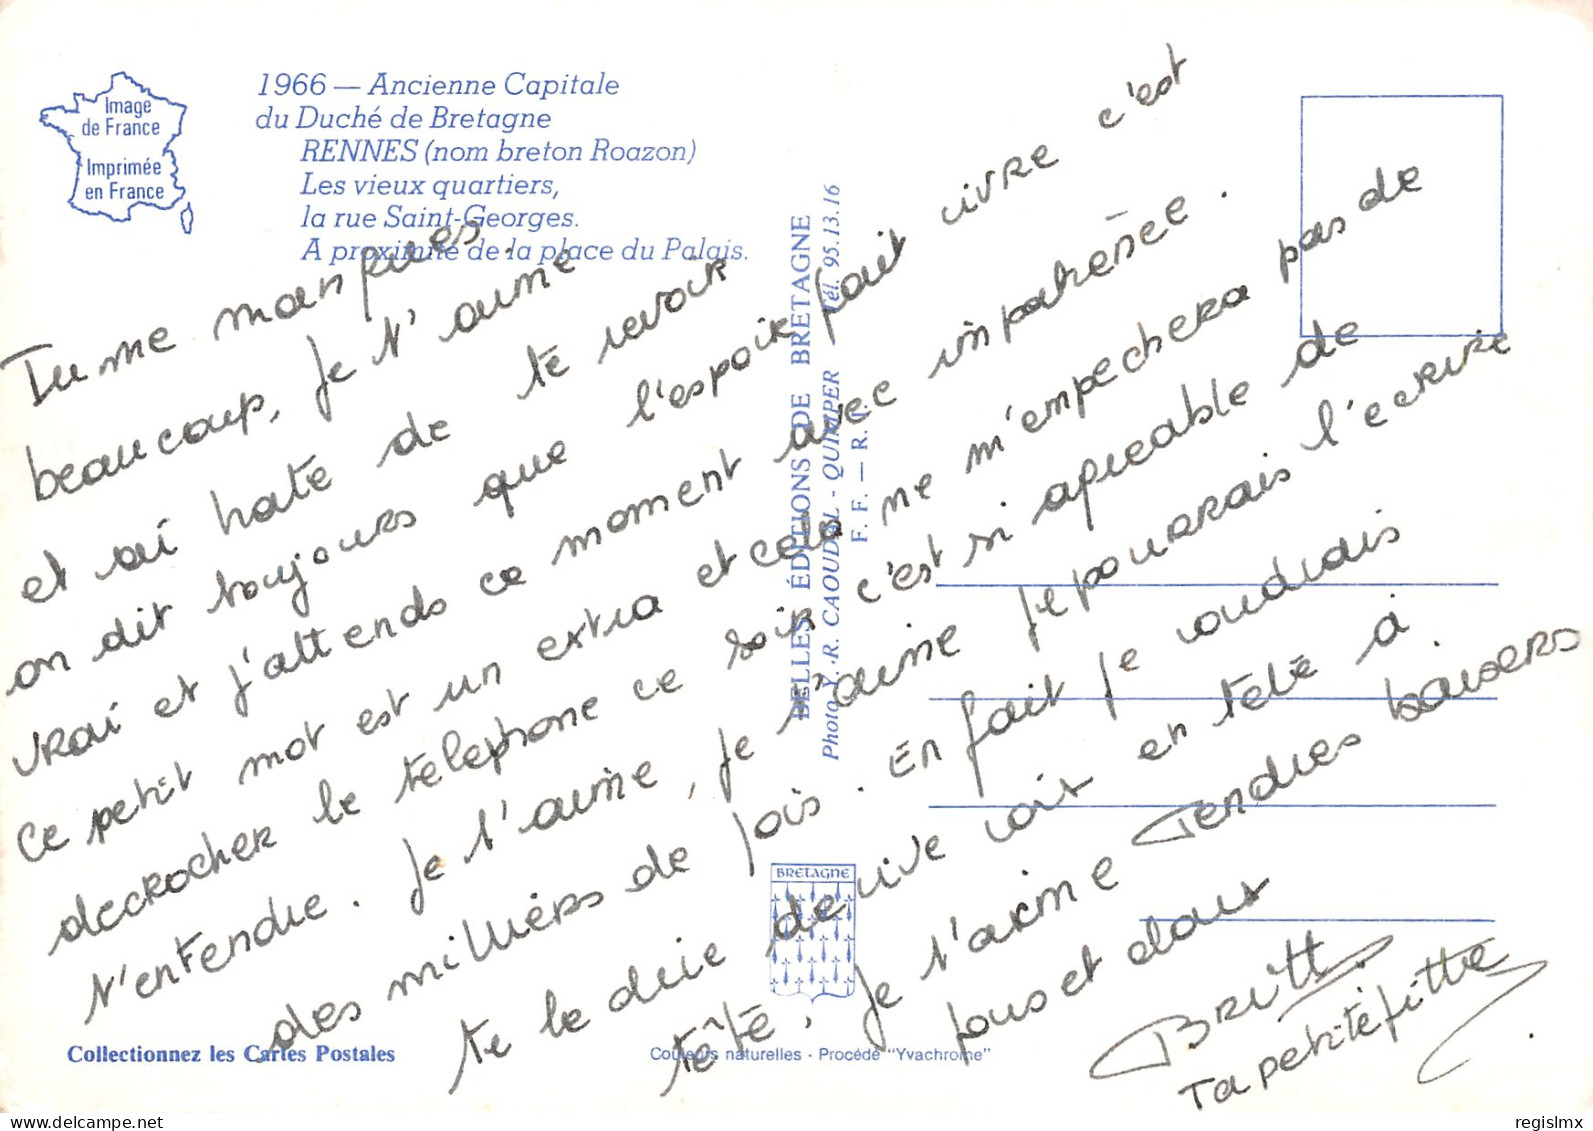 Image
de France
Imprimée
en France
1966 — Ancienne Capitale
du Duché de Bretagne
RENNES (nom breton Roazon)
Les vieux quartiers,
la rue Saint-Georges.
A proximité de la place du Palais.
Tu me manques
beaucoup, je t'aime
et ai hate de te revoir
on dit toujours que l'espoir fait vivre c'est
vrai et j'attends ce moment avec impatiençe.
Ce petit mot est un extra et cela ne m'empechera pas de
decrocher le telephone ce soir c'est si agreable de
t'entendre. Je t'aime, je t'aime je pourrais l'ecrire
des milliers de fois. En fait je voudrais
te le dire de vive voix en tete à
tête, je t'aime Tendres baisers
fous et doux
Britt.
Ta petite fitte
BELLES ÉDITIONS DE BRETAGNE
Photo Y.-R. CAOUDAL - QUIMPER Tél. 95.13.16
F. F. — R. V.
BRETAGNE
Collectionnez les Cartes Postales
Couleurs naturelles - Procédé "Yvachrome"
regislmx